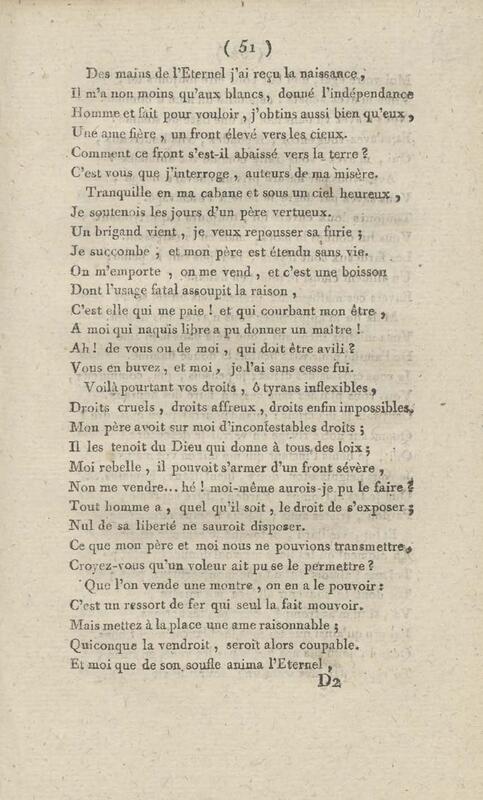 ( 51 )
Des mains de l'Eternel j'ai reçu la naissance,
Il m'a non moins qu'aux blancs, donné l'indépendance
Homme et fait pour vouloir, j'obtins aussi bien qu'eux,
Une ame fière, un front élevé vers les cieux.
Comment ce front s'est-il abaissé vers la terre?
C'est vous que j'interroge, auteurs de ma misère.
Tranquille en ma cabane et sous un ciel heureux,
Je soutenois les jours d'un père vertueux.
Un brigand vient, je veux repousser sa furie;
Je succombe; et mon père est étendu sans vie.
On m'emporte, on me vend, et c'est une boisson
Dont l'usage fatal assoupit la raison,
C'est elle qui me paie! et qui courbant mon être,
A moi qui naquis libre a pu donner un maître!
Ah! de vous ou de moi, qui doit être avili?
Vous en buvez, et moi, je l'ai sans cesse fui.
Voilà pourtant vos droits, ô tyrans inflexibles,
Droits cruels, droits affreux, droits enfin impossibles,
Mon père avoit sur moi d'incontestables droits;
Il les tenoit du Dieu qui donne à tous des loix;
Moi rebelle, il pouvoit s'armer d'un front sévère,
Non me vendre... hé! moi-même aurois-je pu le faire?
Tout homme a, quel qu'il soit, le droit de s'exposer;
Nul de sa liberté ne sauroit disposer.
Ce que mon père et moi nous ne pouvions transmettre,
Croyez-vous qu'un voleur ait pu se le permettre?
Que l'on vende une montre, on en a le pouvoir:
C'est un ressort de fer qui seul la fait mouvoir.
Mais mettez à la place une ame raisonnable;
Quiconque la vendroit, seroit alors coupable.
Et moi que de son soufle anima l'Eternel,
D2